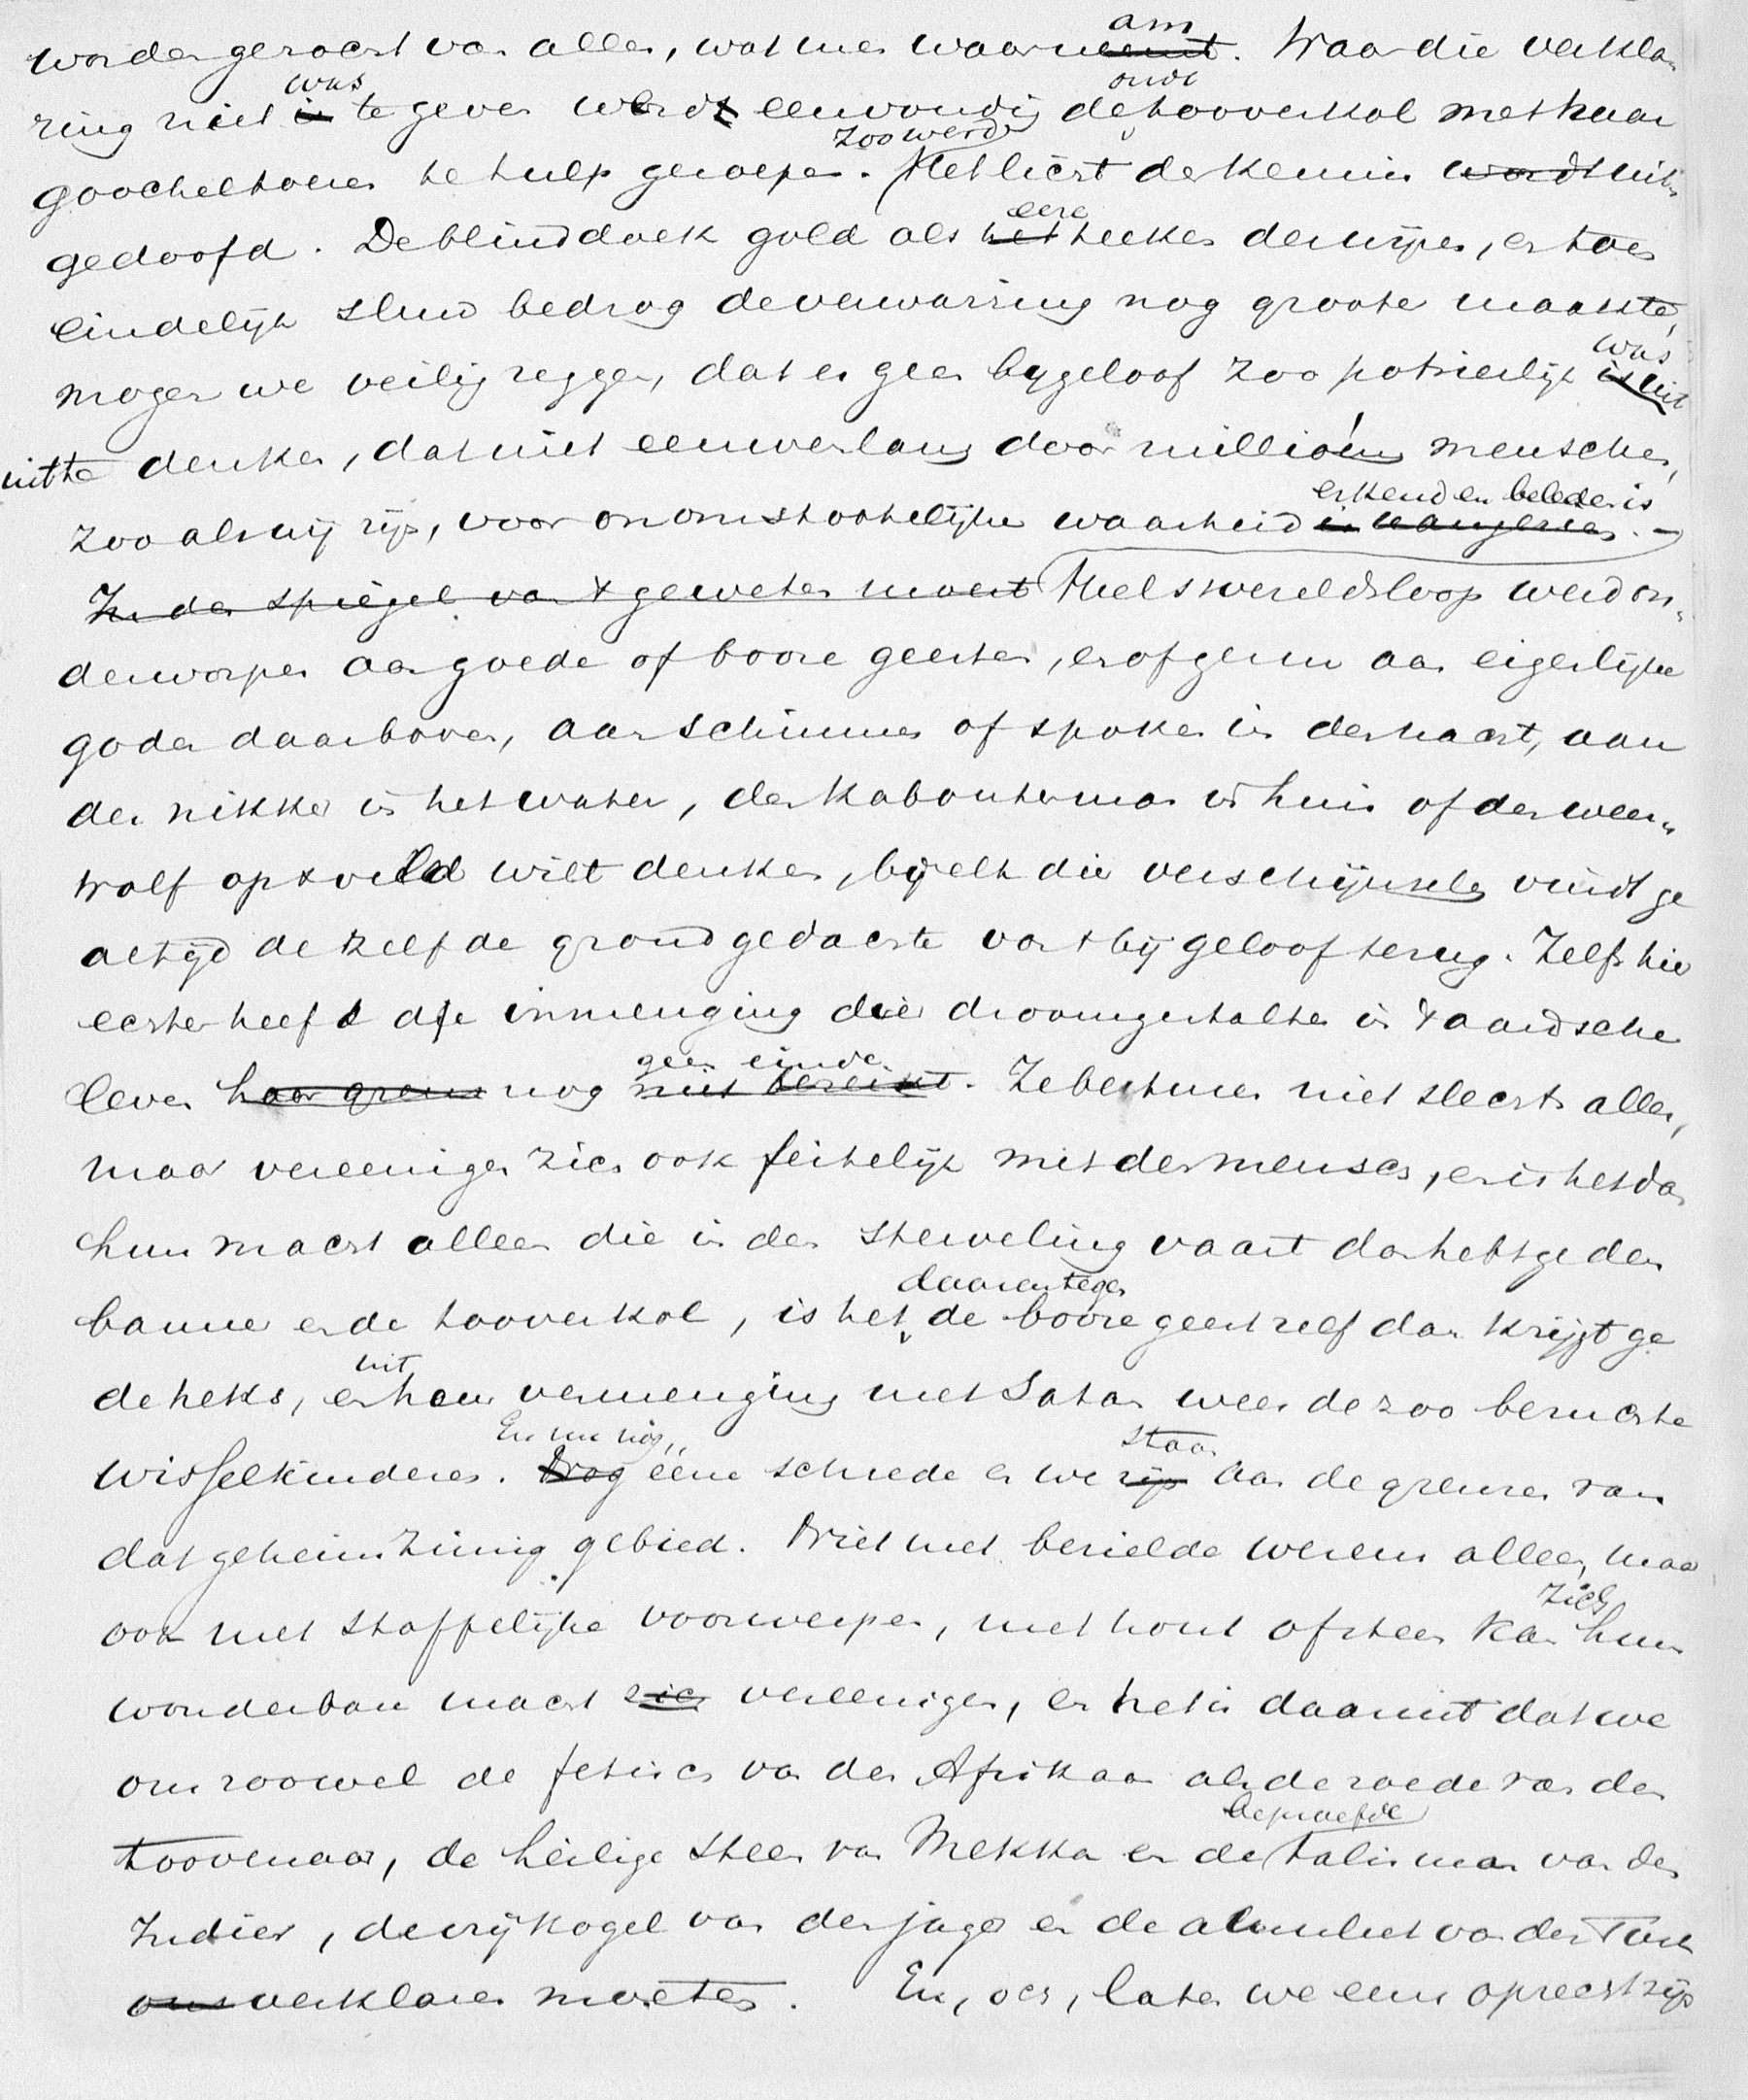 worden gezocht van alles, wat men waarnam. Waar die verkla-
ring niet was te geven werd eenvoudig de oude tooverkol met haar
goocheltoeren te hulp geroepen. Zoo werd het licht der kennis uit-
gedoofd. De blinddoek gold als eereteeken der wijzen, en toen
eindelijk sluw bedrog de verwarring nog grooter maakte,
mogen we veilig zeggen, dat er geen bygeloof zoo potsierlijk was
uit te denken, dat niet eeuwenlang door millioenen menschen,
zooals wij zijn, voor onomstootelijke waarheid erkend en beleden is.
In den spiegel van 't geweten moest Heel 's werelds loop werd on-
derworpen aan goede of booze geesten, en of ge nu aan eigenlijke
goden daarboven, aan schimmen of spoken in den nacht, aan
den nikker in het water, den kabouterman in huis of den weer-
wolf op 't veld wilt denken, bij elk dier verschijnselen vindt ge
altijd dezelfde grondgedachte van 't bijgeloof terug. Zelfs hier
echter heeft de inmenging dier droomgestalten in 't aardsche
leven haar grens nog geen einde. Ze besturen niet slechts alles,
maar vereenigen zich ook feitelijk met den mensch, en is het dan
hun macht alleen die in den sterveling vaart dan hebt ge den
banner en de tooverkol, is het daarentegen de booze geest zelf dan krijgt ge
de heks, en uit haar vermenging met Satan weer de zoo beruchte
wisselkinderen. En nu nog ééne schrede en we staan aan de grenzen van
dat geheimzinnig gebied. Niet met bezielde wezens alleen, maar
ook met stoffelijke voorwerpen, met hout of steen kan zich hun
wonderbare macht zich vereenigen, en het is daaruit dat we
ons zoowel de fetisch van den Afrikaan als de roede van den
toovenaar, de heilige steen van Mekka en de beproefde talisman van den
Indier, de vrijkogel van den jager en de amulet van den Turk
ons verklaren moeten. En, och, laten we eens oprecht zijn